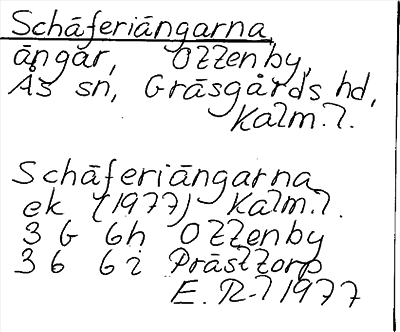 Schäferiängarna
ängar, Ottenby,
Ås sn, Gräsgårds hd,
Kalm. l.
Schäferiängarna
ek (1977) Kalm. l.
3 G 6h Ottenby
3 G 6i Prästtorp
E. R-l 1977